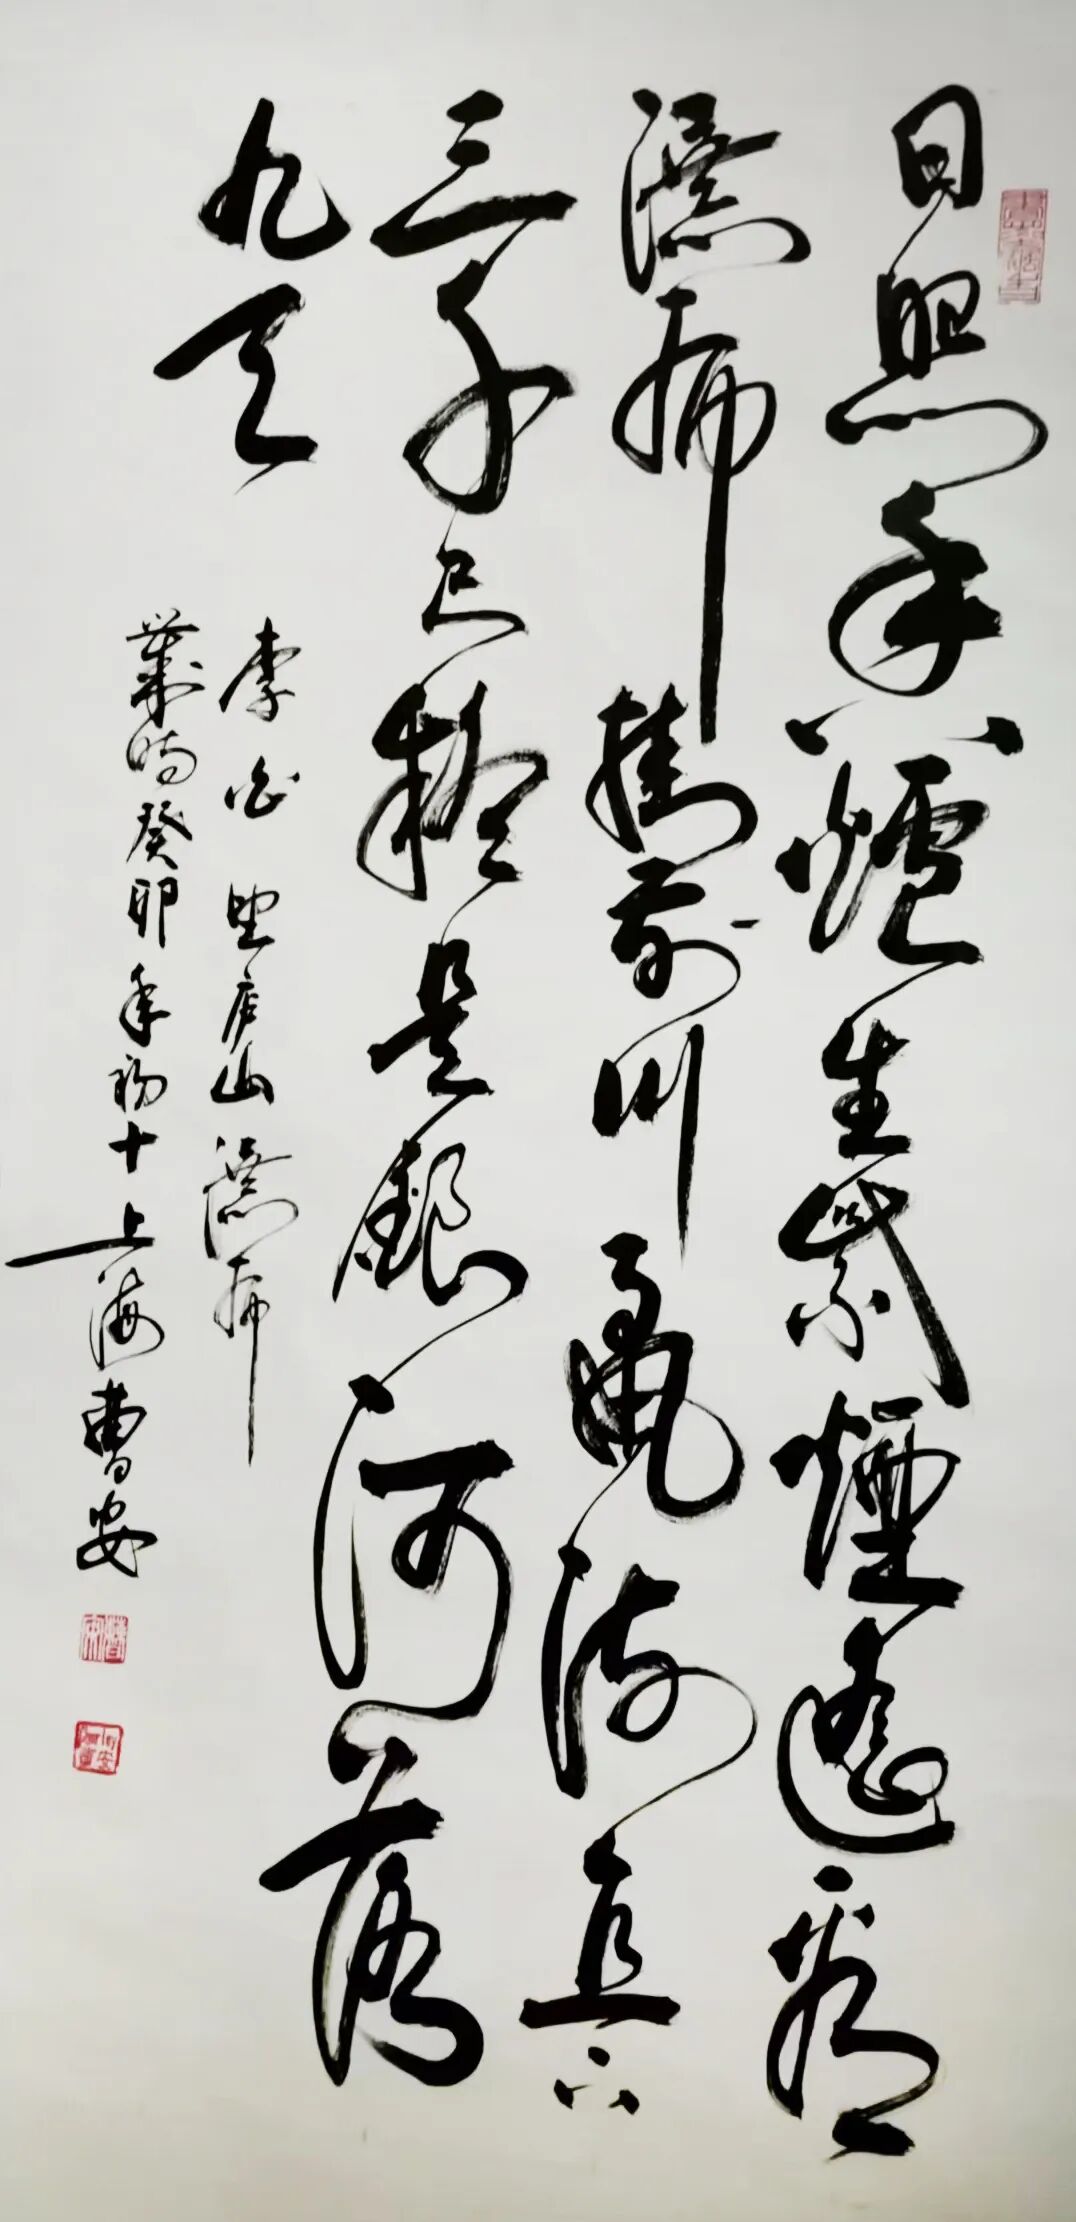 日照香爐生紫煙遙看
瀑布挂前川飛流直下
三千尺疑是銀河落
九天
李白望庐山瀑布
歲時癸卯年初十上海曹安